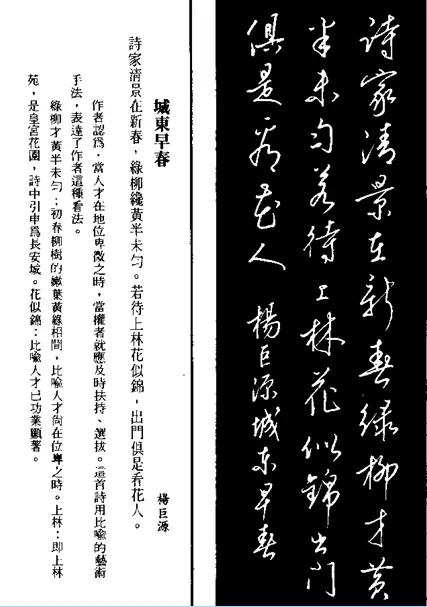 詩家清景在新春綠柳才黃
半未勻若待上林花似錦出門
俱是看花人 楊巨源城東早春
城東早春 楊巨源
詩家清景在新春，綠柳纔黃半未勻。若待上林花似錦，出門俱是看花人。
作者認爲，當人才在地位卑微之時，當權者就應及時扶持、選拔。這首詩用比喻的藝術
手法，表達了作者這種看法。
綠柳才黃半未勻：初春柳樹的嫩葉黃綠相間，比喻人才尚在位卑之時。上林：即上林
苑，是皇宮花園，詩中引申爲長安城。花似錦：比喻人才已功業顯著。